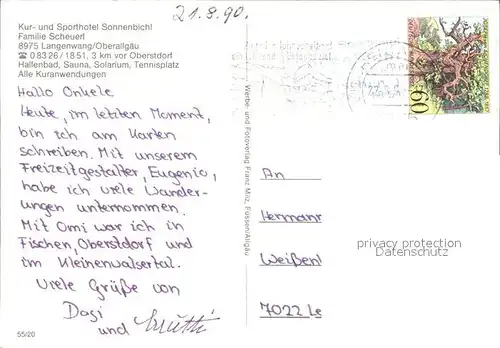 21.8.90.
Kur- und Sporthotel Sonnenbichl
Familie Scheuerl
8975 Langenwang/Oberallgäu
☎ 0 83 26 / 18 51, 3 km vor Oberstdorf
Hallenbad, Sauna, Solarium, Tennisplatz
Alle Kuranwendungen
Hallo Onkele
Heute, im letzten Moment,
bin ich am Karten
schreiben. Mit unserem
Freizeitgestalter, Eugenio,
habe ich viele Wander-
ungen unternommen.
Mit Omi war ich in
Fischen, Oberstdorf und
im Kleinenwalsertal.
Viele Grüße von
Dagi
und Mutti
55/20
Werbe- und Fotoverlag Franz Milz, Füssen/Allgäu
60
An
Hermann
Weißenl
7022 Le
privacy protection
Datenschutz